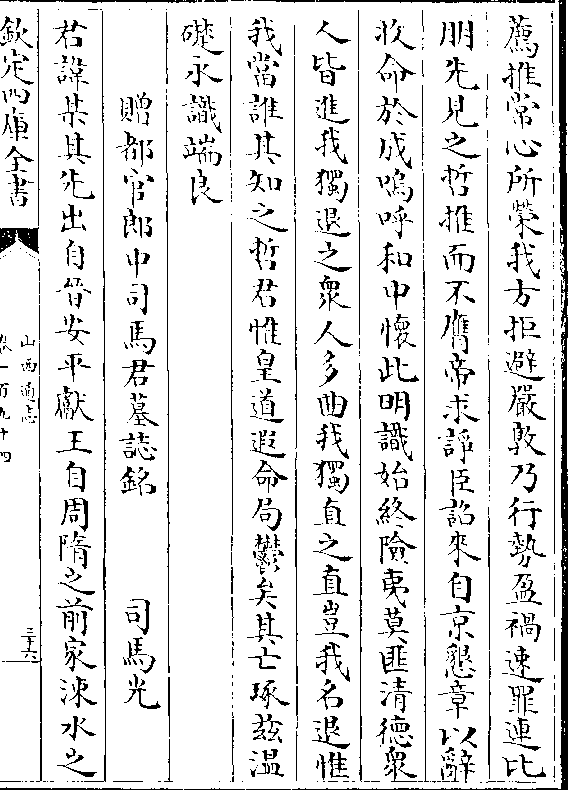 薦推常心所榮我方拒避嚴敦乃行勢盈禍速罪連比
朋先見之哲推而不膺帝求諍臣詔來自京懇章以辭
收命於成嗚呼和中懷此明識始終險夷莫匪清德衆
人皆進我獨退之衆人多曲我獨直之直豈我名退惟
我當誰其知之哲君惟皇道遐命局鬱矣其亡琢兹温
礎永識端良
贈都官郎中司馬君墓誌銘 司馬光
君諱某其先出自晉安平獻王自周隋之前家涑水之
欽定四庫全書
山西通志
卷一百九十四
三十六